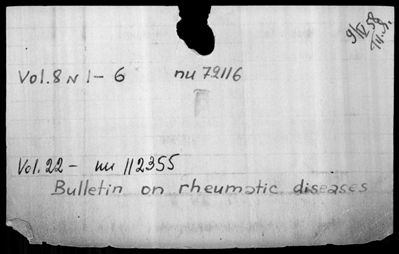 9/IV 58
Vol. 8 N 1 - 6 nu 72116
Vol. 22 - nu 112355
Bulletin on rheumatic diseases